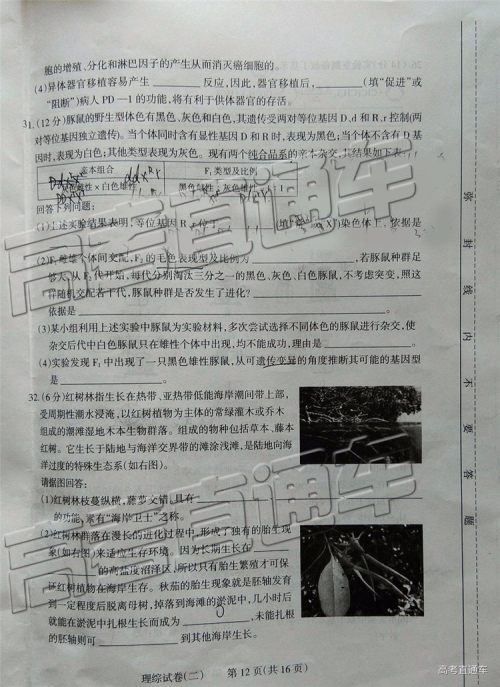 胞的增殖、分化和淋巴因子的产生从而消灭癌细胞的。
(4)异体器官移植容易产生________反应,因此,器官移植后,________(填“促进”或
“阻断”)病人 PD—1 的功能,将有利于供体器官的存活。
31.(12分)豚鼠的野生型体色有黑色、灰色和白色,其遗传受两对等位基因 D、d 和 R、r 控制(两
对等位基因独立遗传)。当个体同时含有显性基因 D 和 R 时,表现为黑色;当个体不含有 D 基
因时,表现为白色;其他类型表现为灰色。现有两个纯合品系的亲本杂交,其结果如下表:
亲本组合
F₁类型及比例
雌性×白色雄性
黑色雌性:灰色雄性
回答下列问题:
(1)上述实验结果表明,等位基因 R、r 位于
染色体上,依据是
(2)F₁雌雄个体间交配,F₂的毛色表现型及比例为________,若豚鼠种群足
够大,从F₂代开始,每代分别淘汰三分之一的黑色、灰色、白色豚鼠,不考虑突变,照这
样随机交配若干代,豚鼠种群是否发生了进化?________
依据是________。
(3)某小组利用上述实验中豚鼠为实验材料,多次尝试选择不同体色的豚鼠进行杂交,使
杂交后代中白色豚鼠只在雄性个体中出现,均不能成功,理由是________。
(4)实验发现 F₁中出现了一只黑色雄性豚鼠,从可遗传变异的角度推断其可能的基因型
是________。
32.(6分)红树林指生长在热带、亚热带低能海岸潮间带上部,
受周期性潮水浸淹,以红树植物为主体的常绿灌木或乔木
组成的潮滩湿地木本生物群落。组成的物种包括草本、藤本
红树。它生长于陆地与海洋交界带的滩涂浅滩,是陆地向海
洋过度的特殊生态系(如右图)。
请据图回答:
(1)红树林枝蔓纵横,藤萝交错。具有________
的功能,素有“海岸卫士”之称。
(2)红树林群落在漫长的进化过程中,形成了独有的胎生现
象(如右图)来适应生存环境。因为长期生长在
________的高盐度沼泽区,所以只有胎生繁殖才可保
证红树植物在海岸生存。秋茄的胎生现象就是胚轴发育
到一定程度后脱离母树,掉落到海滩的淤泥中,几小时后
就能在淤泥中扎根生长而成为________,未能扎根
的胚轴则可________到其他海岸生长。
理综试卷(二) 第12页(共16页)
弥
封
线
内
不
要
答
题
高考直通车
高考直通车
高考直通车